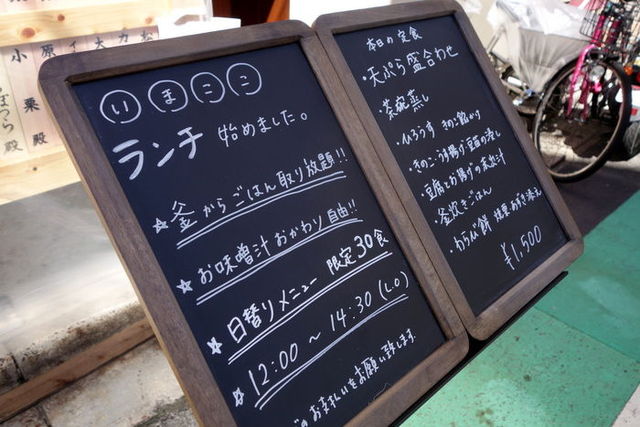 いまここ
ランチ 始めました。
☆ 釜からごはん取り放題!!
☆ お味噌汁おかわり自由!!
☆ 日替りメニュー 限定30食
☆ 12:00 〜 14:30 (LO)
のお支払いをお願い致します
本日の定食
・天ぷら盛合わせ
・茶碗蒸し
・ひろうす きのこ餡かけ
・きのこ・うす揚げ・豆苗の浸し
・豆腐とお揚げの味噌汁
・釜炊きごはん
・わらび餅 抹茶あずき添え
¥1,500
小栗殿
原